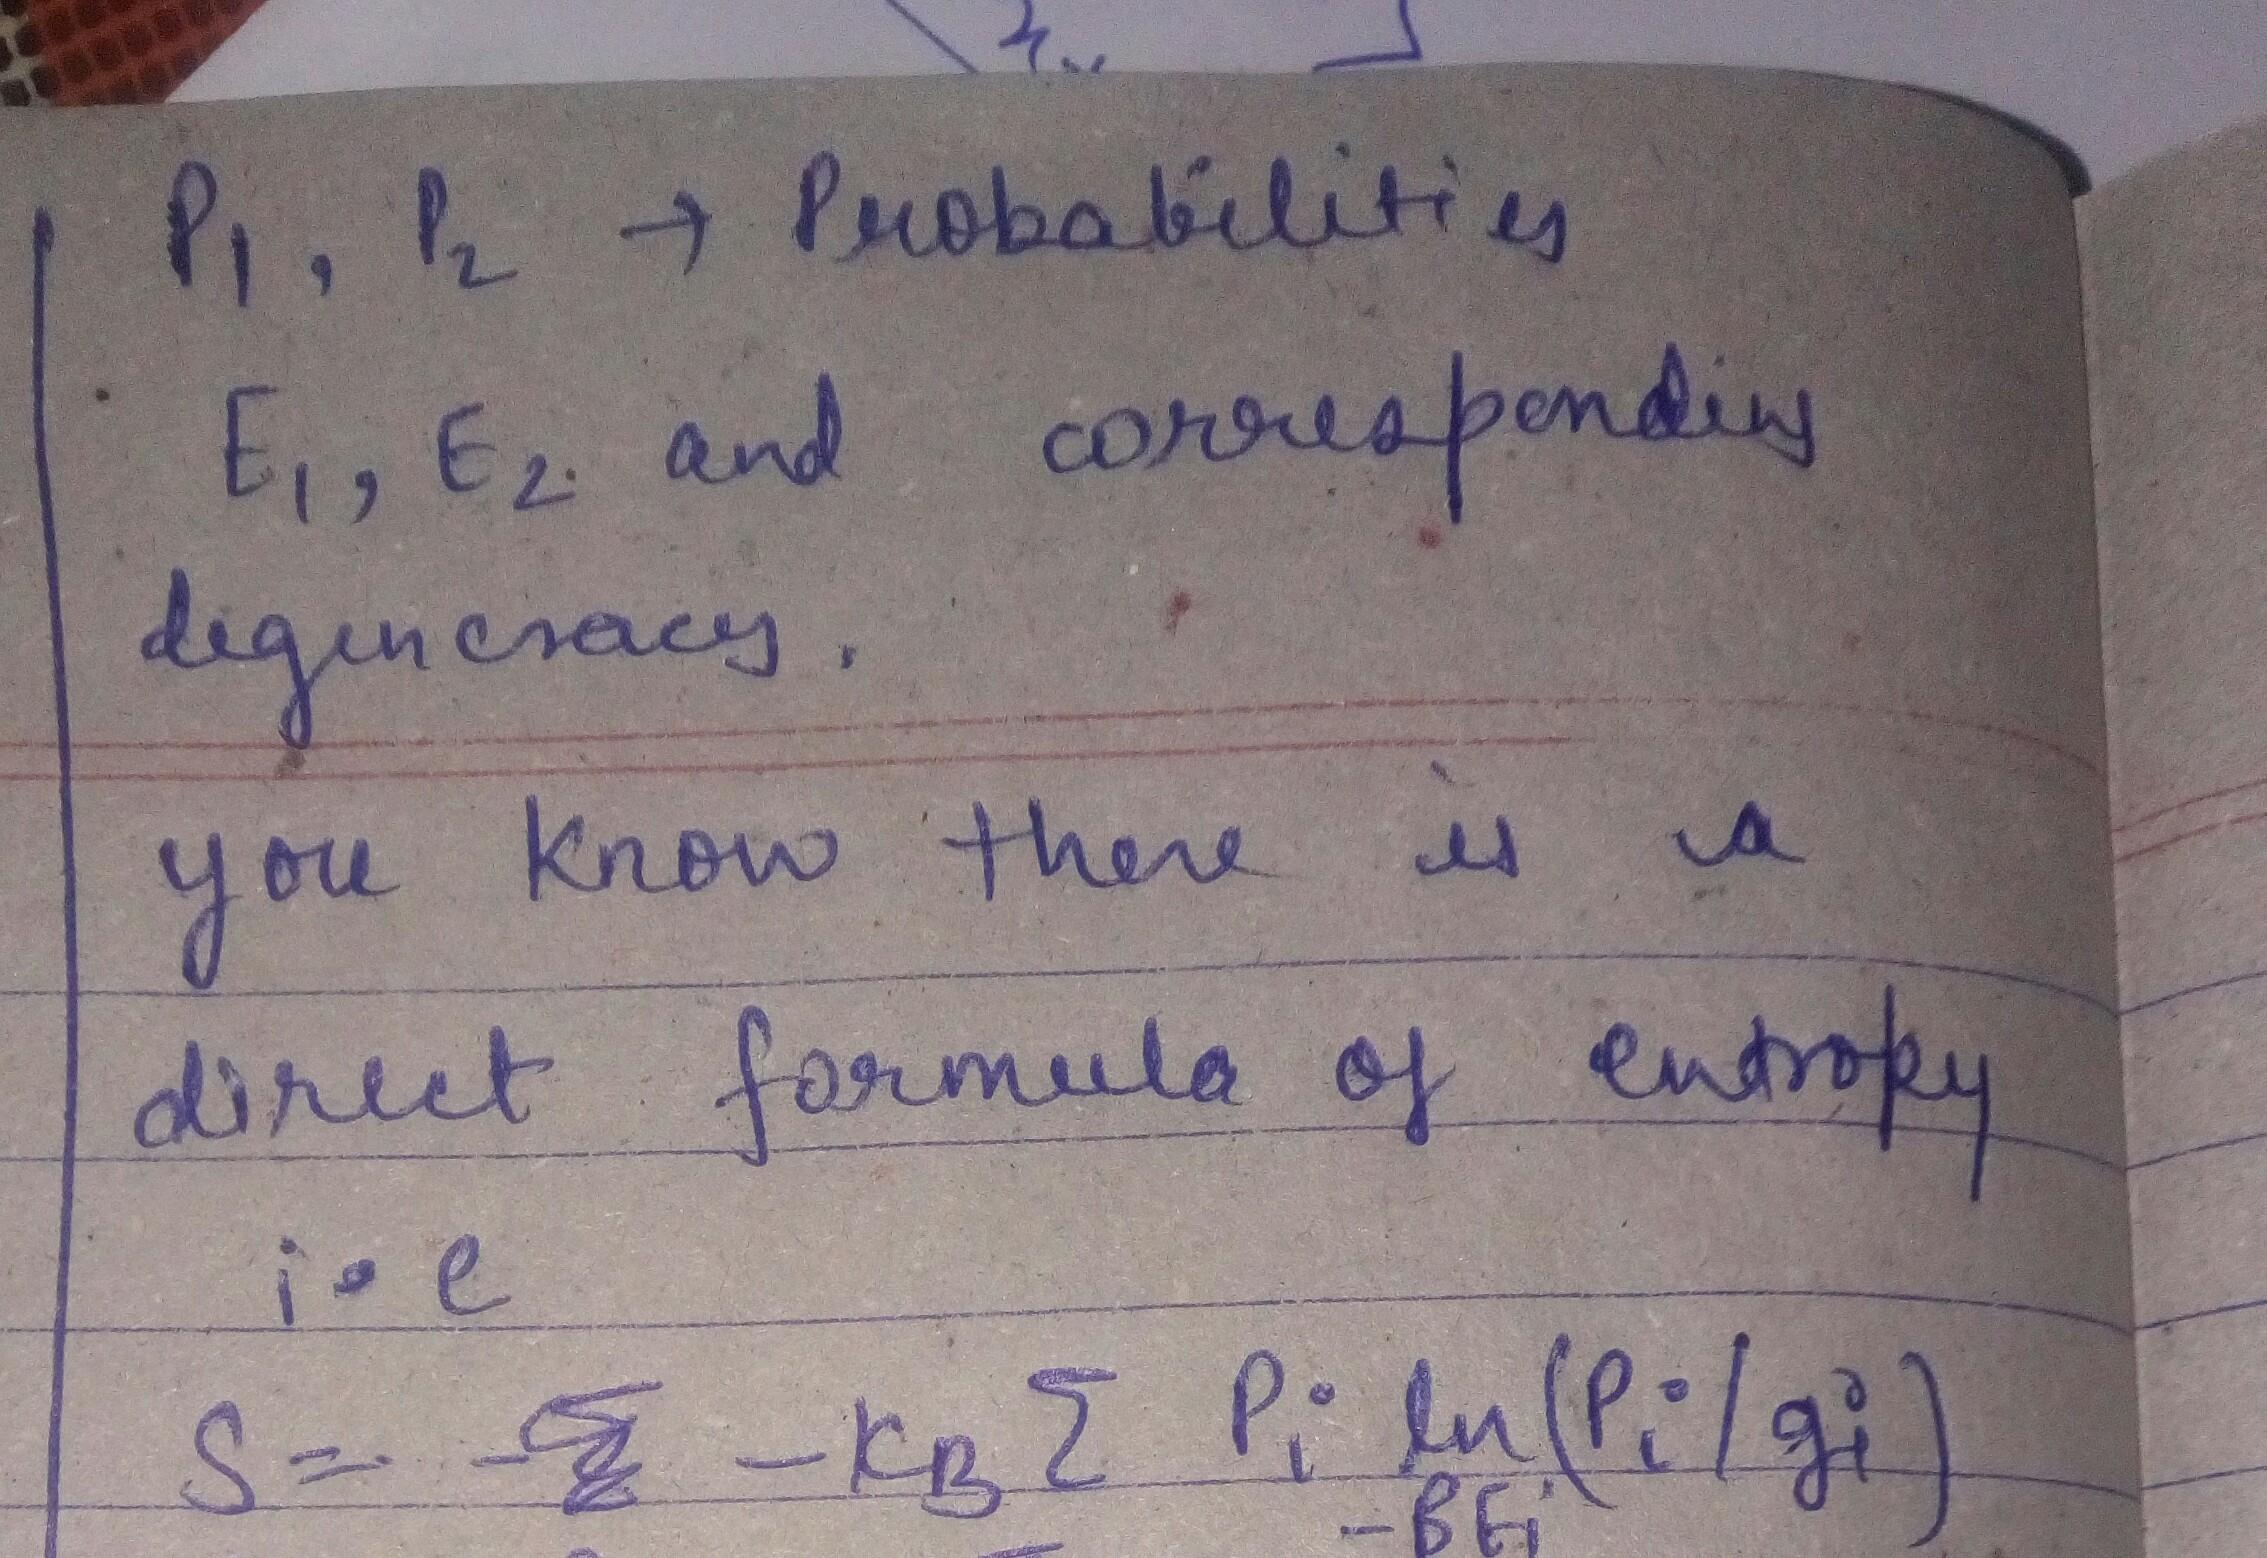 P1, P2 → Probabilities
E1, E2. and corresponding
degeneracy.
you know there is a
direct formula of entropy
i.e
S = - Σ - KB Σ Pi ln (Pi/gi)
-BEi